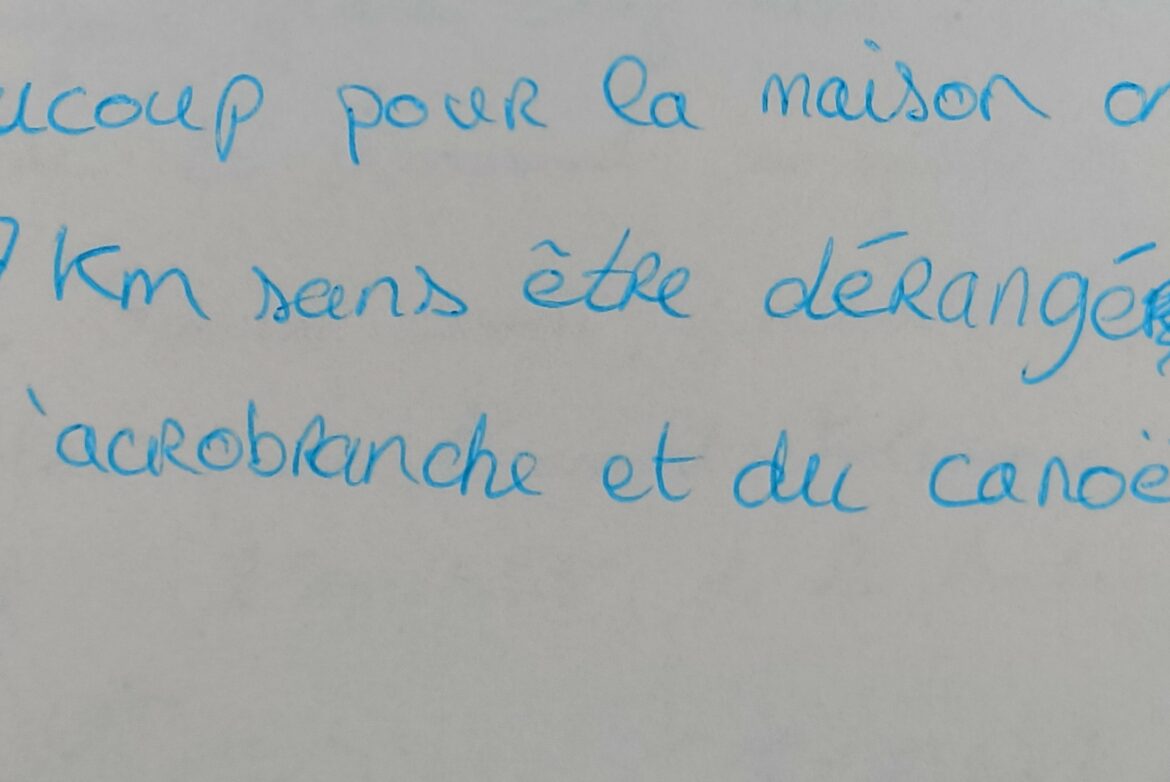 ucoup pour la maison on
7 Km sans être dérangé
l'acrobranche et du canoë